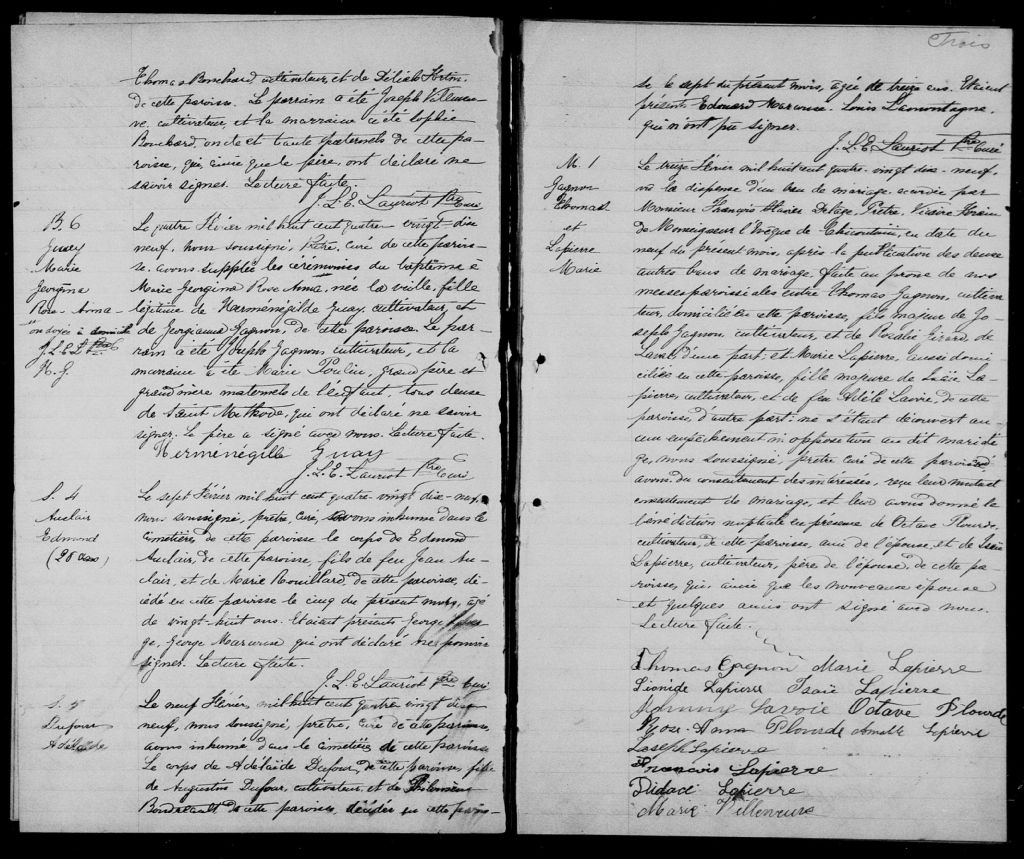 Thomas Bouchard cultivateur, et de Déliah Fortin
de cette paroisse. Le parrain a été Joseph Villeneu-
ve, cultivateur, et la marraine a été Sophie
Bouchard, oncle et tante paternels de cette pa-
roisse, qui, ainsi que le père, ont déclaré ne
savoir signer. Lecture faite.
J. L. E. Lauriot Ptre Curé
B. 6
Guay
Marie
Georgina
Rose-Anna
ondoyée à domicile
J. L. E. L. Ptre C.
H. G.
Le quatre Février mil huit cent quatre-vingt-dix-
neuf, nous soussigné, Prêtre, curé de cette parois-
se, avons suppléé les cérémonies du baptême à
Marie Georgina Rose Anna, née la veille, fille
légitime de Herménégilde Guay, cultivateur, et
de Georgianna Gagnon, de cette paroisse. Le par-
rain a été Joseph Gagnon, cultivateur, et la
marraine a été Marie Poulin, grand père et
grand'mère maternels de l'enfant, tous deux
de Saint Methode, qui ont déclaré ne savoir
signer. Le père a signé avec nous. Lecture faite.
Hermenégille Guay
J. L. E. Lauriot Ptre Curé
S. 4
Auclair
Edmond
(28 ans)
Le sept Février mil huit cent quatre-vingt-dix-neuf,
nous soussigné, prêtre, curé, avons inhumé dans le
cimetière de cette paroisse le corps de Edmond
Auclair, de cette paroisse, fils de feu Jean Au-
clair, et de Marie Rouillard, de cette paroisse, dé-
cédé en cette paroisse le cinq du présent mois, âgé
de vingt-huit ans. Etaient présents George
ge, George Marcoux qui ont déclaré ne pouvoir
signer. Lecture faite.
J. L. E. Lauriot Ptre Curé
S. 5
Dufour
Adélaïde
Le neuf Février, mil huit cent quatre vingt dix-
neuf, nous soussigné, prêtre, curé de cette paroisse,
avons inhumé dans le cimetière de cette paroisse
Le corps de Adélaïde Dufour, de cette paroisse, fille
de Augustin Dufour, cultivateur, et de Philomène
Boudreault, de cette paroisse, décédée en cette parois-
Trois
se le sept du présent mois, âgée de treize ans. Etaient
présents Edouard Marcoux, Louis Lamontagne,
qui n'ont pu signer.
J. L. E. Lauriot Ptre Curé
M. 1
Gagnon
Thomas
et
Lapierre
Marie
Le treize Février mil huit cent quatre-vingt dix-neuf,
vu la dispense d'un ban de mariage accordée par
Monsieur François Xavier Delage, Prêtre, Vicaire Forain
de Monseigneur l'Evêque de Chicoutimi, en date du
neuf du présent mois, après la publication des deux
autres bans de mariage, faite au prône de nos
messes paroissiales entre Thomas Gagnon, cultiva-
teur, domicilié en cette paroisse, fils majeur de Jo-
seph Gagnon, cultivateur, et de Girard, de
Laval d'une part; et Marie Lapierre, aussi domi-
ciliée en cette paroisse, fille majeure de Isaïe La-
pierre, cultivateur, et de feu Adèle Savoie, de cette
paroisse, d'autre part: ne s'étant découvert au-
cun empêchement ni opposition au dit maria-
ge, nous soussigné, prêtre curé de cette paroisse
avons, du consentement des intéressés, reçu leur mutuel
consentement de mariage, et leur avons donné la
bénédiction nuptiale en présence de Octave Plourde,
cultivateur, de cette paroisse, ami de l'épouse, et de Isaïe
Lapierre, cultivateur, père de l'épouse, de cette pa-
roisse, qui, ainsi que les nouveaux époux
et quelques amis ont signé avec nous.
Lecture faite.
Thomas Gagnon Marie Lapierre
Lapierre Isaïe Lapierre
Johnny Savoie Octave Plourde
Rose-Anna Plourde Lapierre
Joseph Lapierre
François Lapierre
Didace Lapierre
Marie Villeneuve